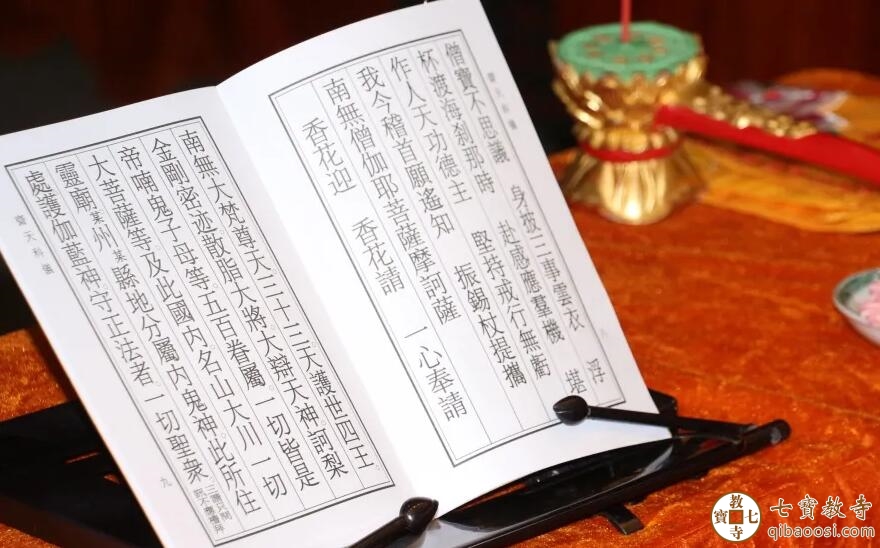 齋天科儀
八
僧寶不思議　身披三事雲衣　浮
杯渡海刹那時　赴感應羣機　堪
作人天功德主　堅持戒行無虧
我今稽首願遙知　振錫杖提攜
南無僧伽耶菩薩摩訶薩
香花迎　香花請　一心奉請
南無大梵尊天三十三天護世四王。
金剛密迹散脂大將大辯天神訶梨
帝喃鬼子母等。五百眷屬。一切皆是
大菩薩等及此國内名山大川一切
靈廟某州某縣地分屬内鬼神此所住
處護伽藍神。守正法者。一切聖衆
齋天科儀
九
七寶教寺
七寶教寺
qibaoosi.com